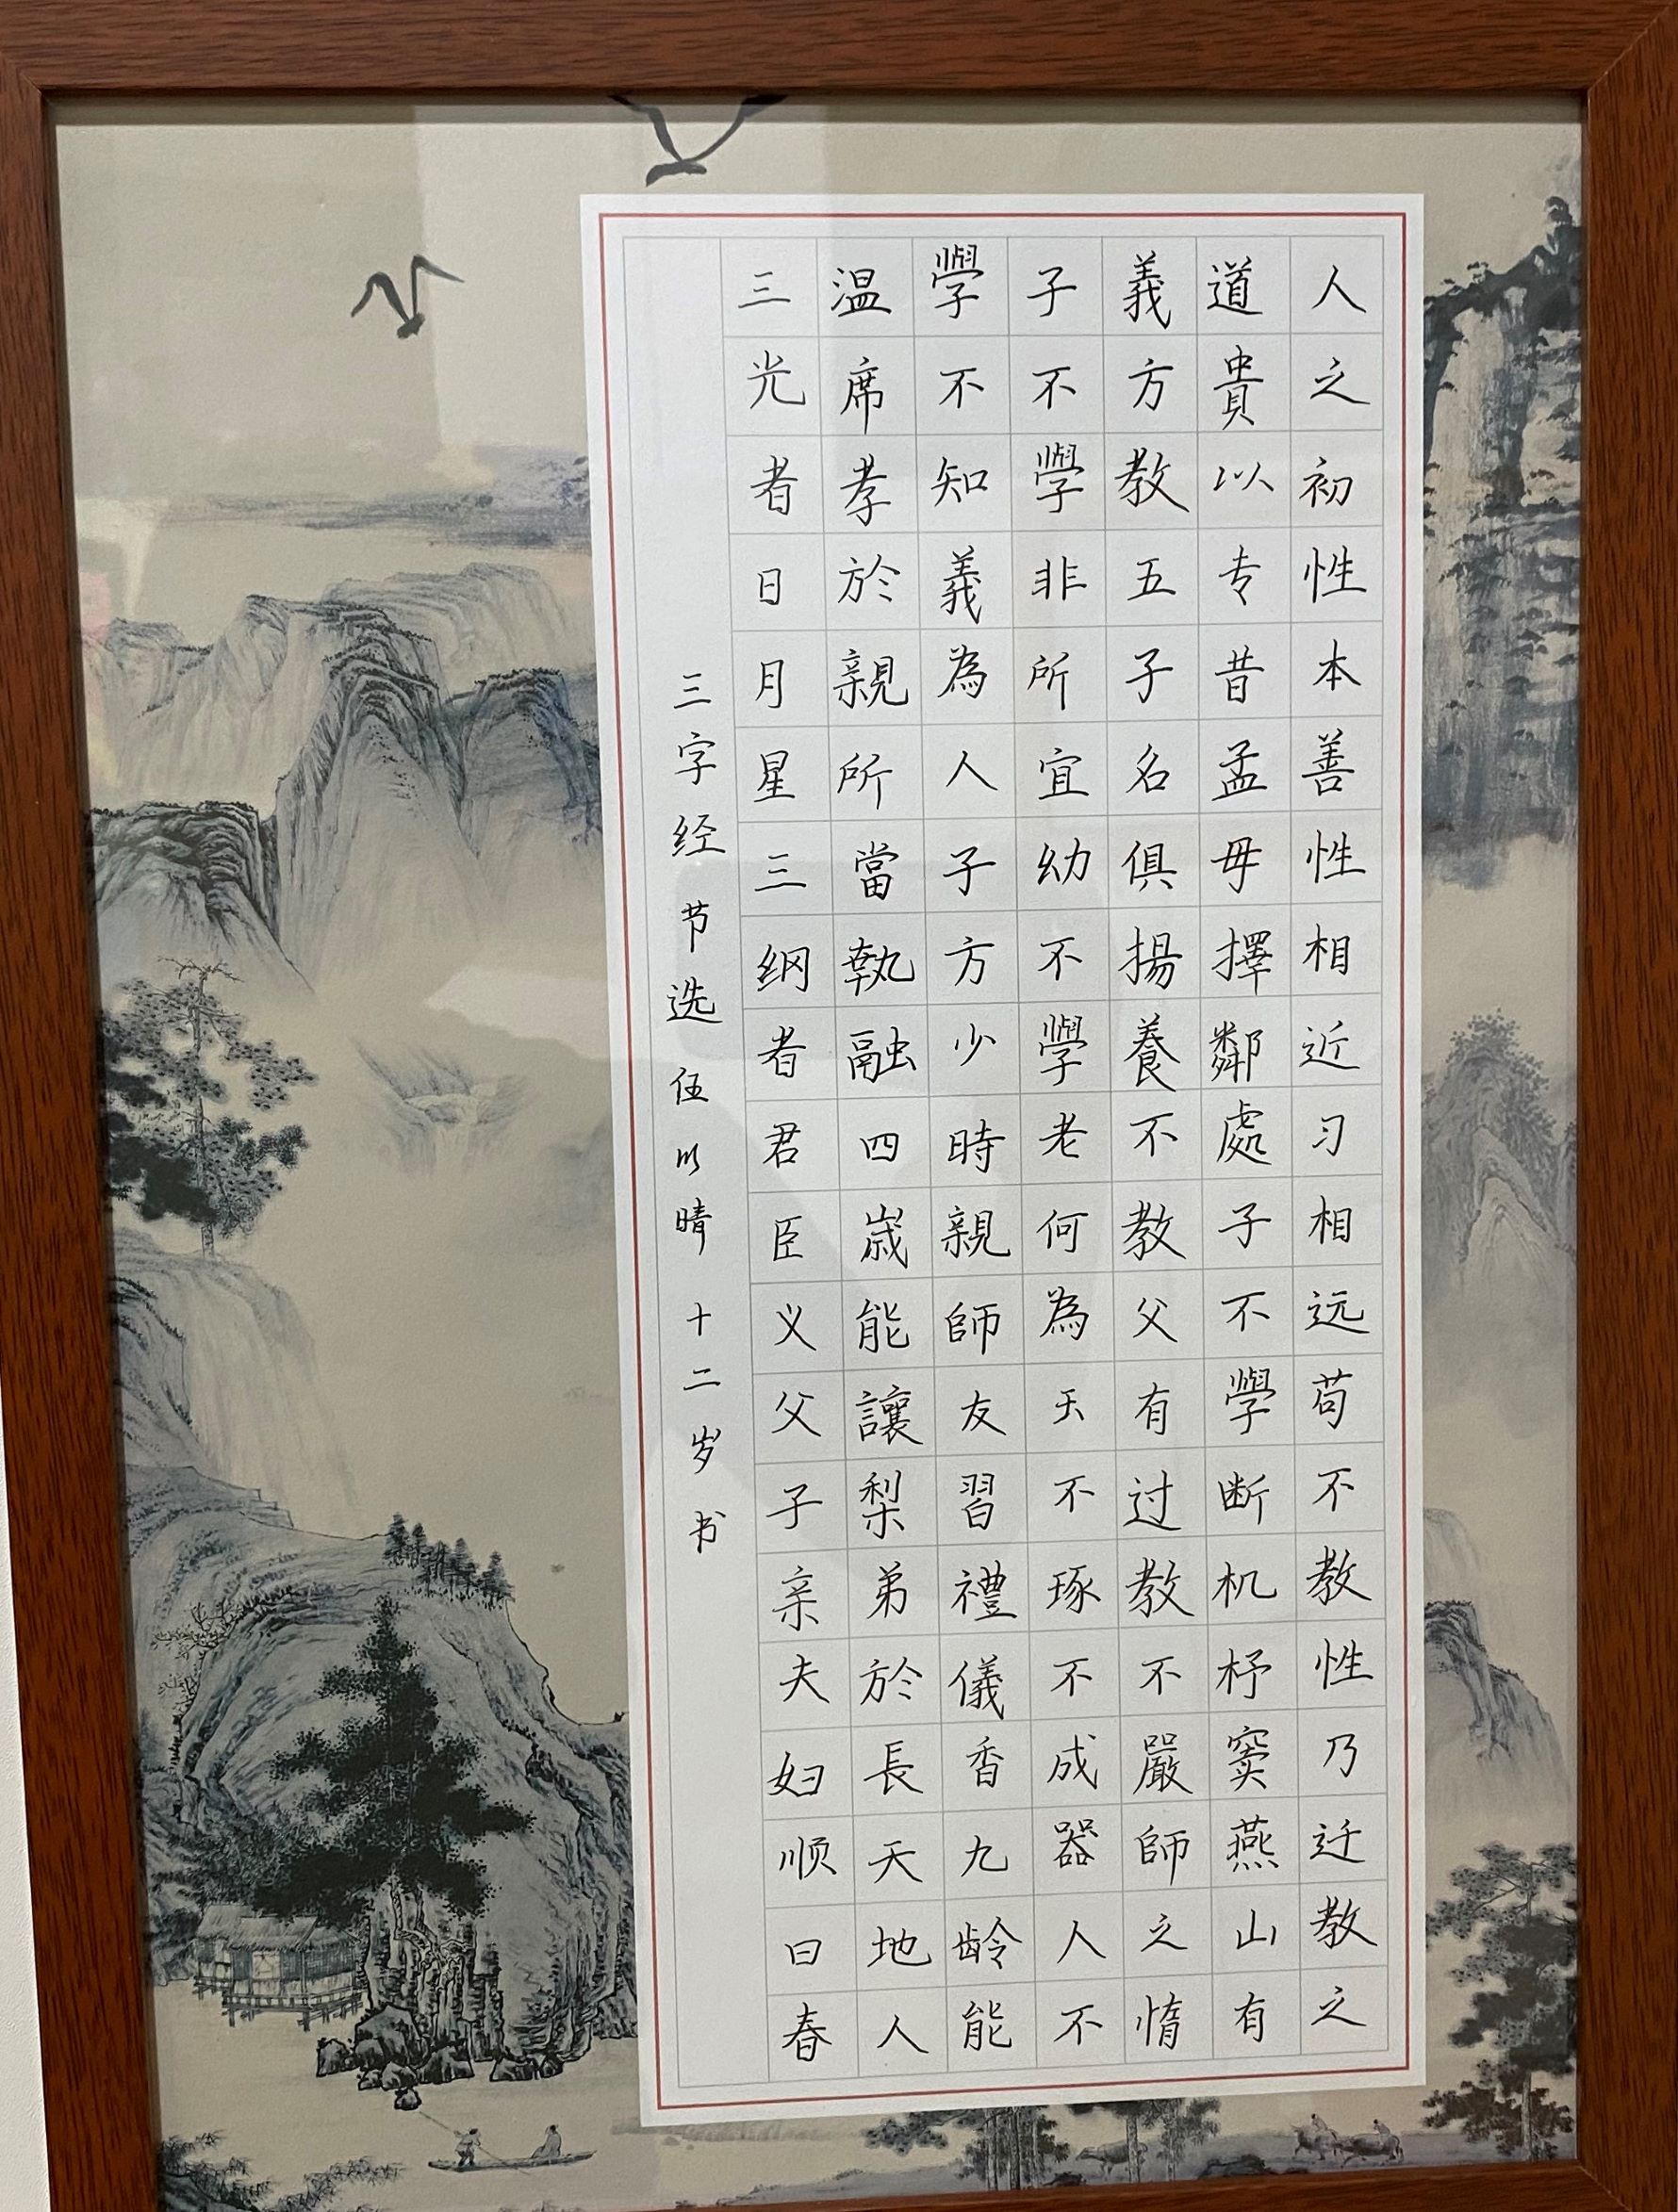 人之初性本善性相近习相远苟不教性乃迁教之
道貴以专昔孟母擇鄰處子不學断机杼窦燕山有
義方教五子名俱揚養不教父有过教不嚴師之惰
子不學非所宜幼不學老何為玉不琢不成器人不
學不知義為人子方少時親師友習禮儀香九龄能
温席孝於親所當執融四歲能讓梨弟於長天地人
三光者日月星三纲者君臣义父子亲夫妇顺曰春
三字经节选 伍以晴 十二岁书